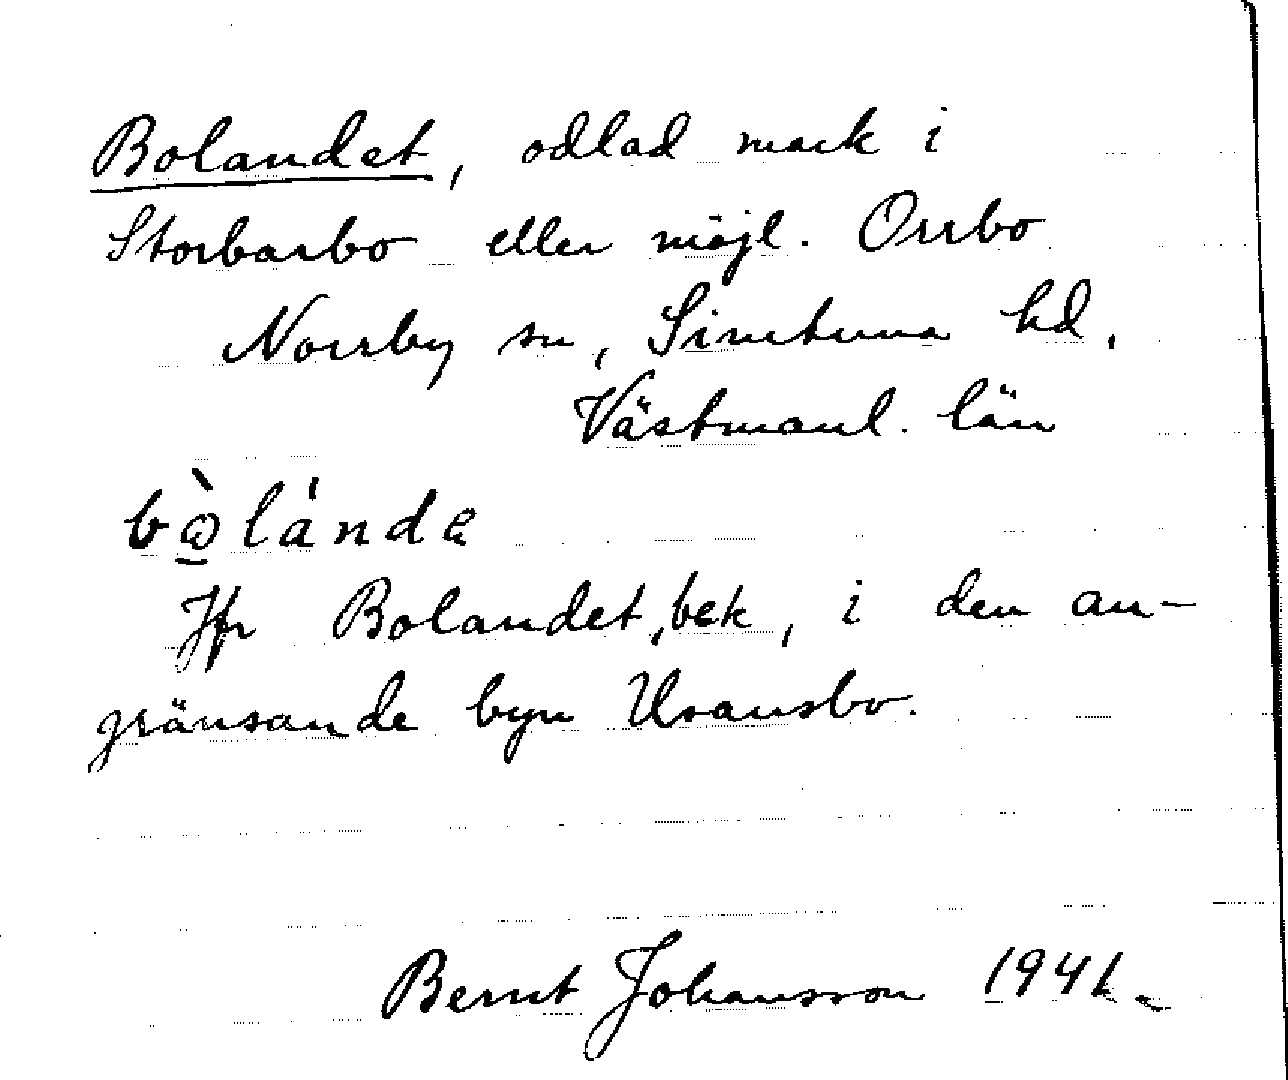 Bolandet, odlad mark i
Storbarbo eller möjl. Orrbo
Norrby sn, Simtuna hd,
Västmanl. län
bò̱lánde
Jfr Bolandet, bek, i den an-
gränsande byn Uransbo.
Bernt Johansson 1941.